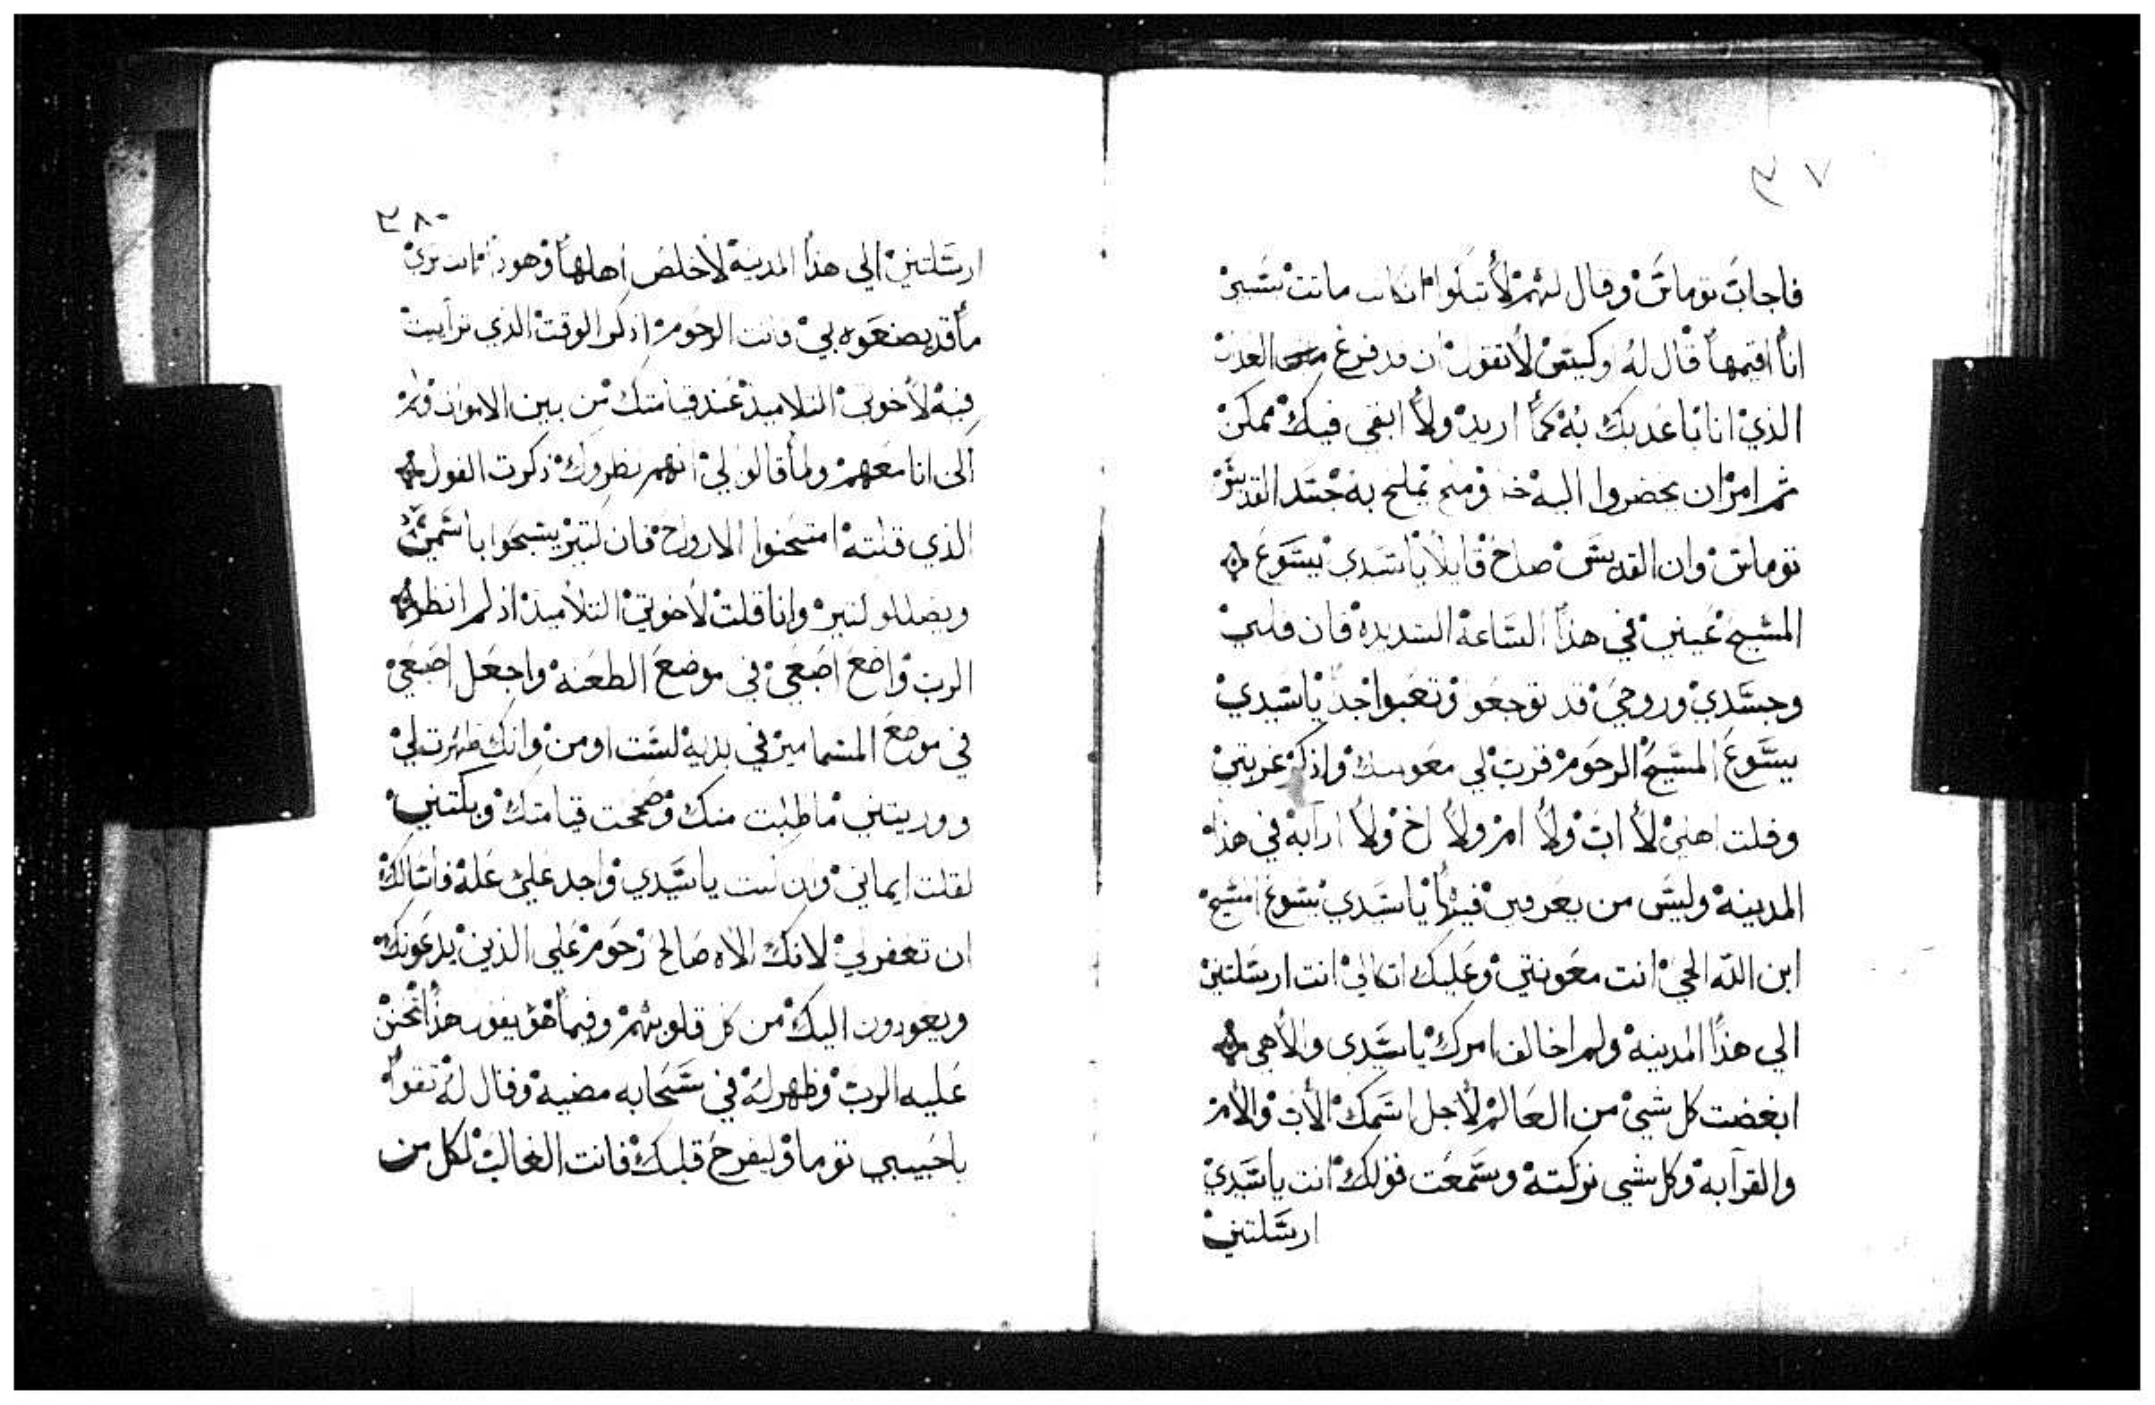 ٣٧
فاجاب توماس وقال لهم لا تبكوا ان كانت ماتت بنتي
انا اقيمها قال له لوكيوس لا تقول ان قد فرغ العذاب
الذي انا باعذبك به كما اريد ولا ابقي فيك ممكن
ثم امر ان يحضروا اليه خل وملح تملح به جسد القديس
توماس وان القديس صاح قايلا يا سيدي يسوع
المسيح عيني في هذا الساعة الشديدة فان قلبي
وجسدي وروحي قد توجعو وتعبوا جدا يا سيدي
يسوع المسيح الرحوم قرب لي معونتك واذكر غربتي
وقلت اهلي لا اب ولا ام ولا اخ ولا ارابه في هذا
المدينه وليس من يعرفني فيها يا سيدي يسوع المسيح
ابن الله الحي انت معونتي وعليك اتكالي انت ارسلتني
الي هذا المدينه ولم اخالف امرك يا سيدي والاهي
ابغضت كل شي من العالم لاجل اسمك الاب والام
والقرابه وكل شي تركته وسمعت قولك انت يا سيدي
ارسلتني
٣٨٠
ارسلتني الي هذا المدينة لاخلص اهلها وهوذا انت تري
ما قد يصنعوه بي فانت الرحوم اذكر الوقت الذي تراييت
فيه لاخوتي التلاميذ عند قيامتك من بين الاموات ولم
اكن انا معهم ولما قالو لي انهم نظروك ذكرت القول
الذي قلته امتحنوا الارواح فان كثير يتسموا باسمي
ويضللو كثير وانا قلت لاخوتي التلاميذ اذ لم انظر
الرب واضع اصبعي في موضع الطعنه واجعل اصبعي
في موضع المسامير في يديه لست اومن وانك ظهرت لي
ووريتني ما طلبت منك وصححت قيامتك وبكتني
لقلت ايماني وان كنت يا سيدي واجد علي علة فاسالك
ان تغفر لي لانك الاه صالح رحوم علي الذين يدعونك
ويعودون اليك من كل قلوبهم وفيما هو يقول هذا تحنن
عليه الرب وظهر له في سحابه مضيه وقال له تقوا
يا حبيبي توما وليفرح قلبك فانت الغالب لكل من